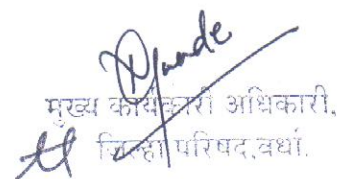 मुख्य कार्यकारी अधिकारी,
जिल्हा परिषद,वर्धा.